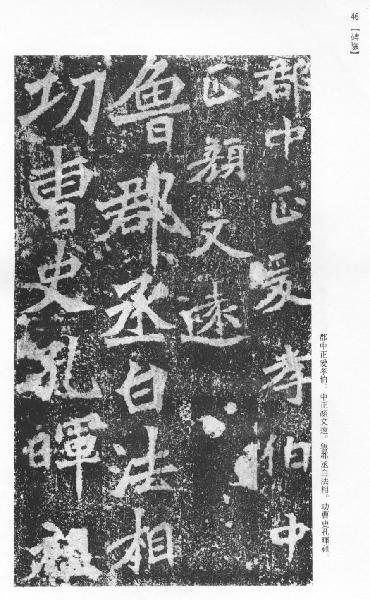 46【碑陰】
郡中正爰孝伯中
正顏文遠
魯郡丞白法相
功曹史孔暉祖
郡中正爰孝伯。中正顏文遠。魯郡丞白法相。功曹史孔暉祖。